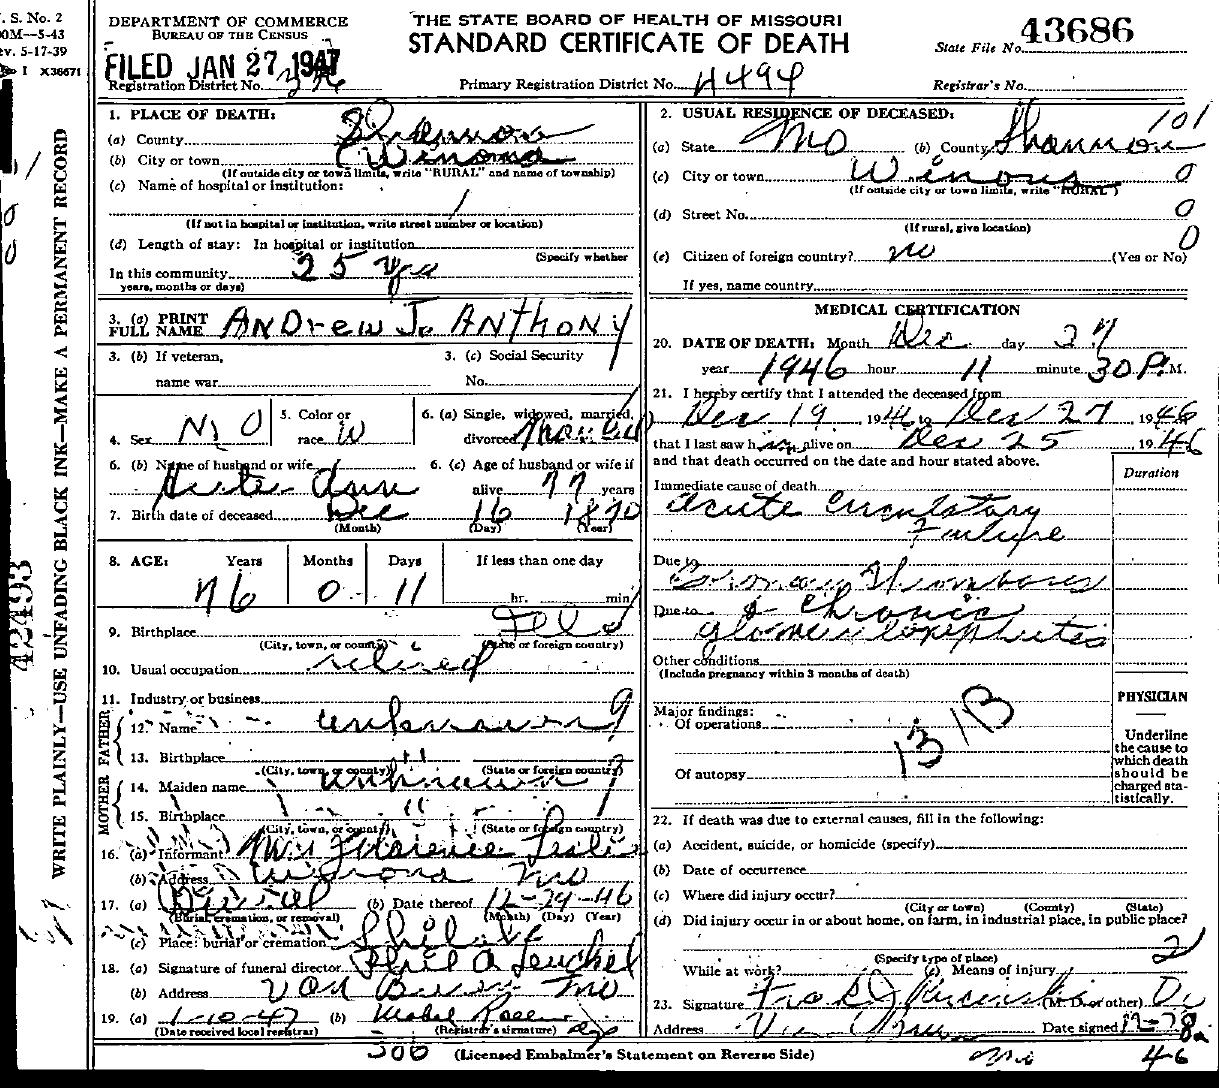 V. S. No. 2
00M—5-43
ev. 5-17-39
X36671
DEPARTMENT OF COMMERCE
BUREAU OF THE CENSUS
FILED JAN 27 1947
THE STATE BOARD OF HEALTH OF MISSOURI
STANDARD CERTIFICATE OF DEATH
State File No. 43686
Registration District No.
Primary Registration District No. 4494
Registrar's No.
WRITE PLAINLY—USE UNFADING BLACK INK—MAKE A PERMANENT RECORD
42493
1. PLACE OF DEATH:
(a) County Shannon
(b) City or town Winona
(If outside city or town limits, write "RURAL" and name of township)
(c) Name of hospital or institution:
(If not in hospital or institution, write street number or location)
(d) Length of stay: In hospital or institution
(Specify whether
In this community 25 yrs
years, months or days)
3. (a) PRINT FULL NAME ANDrew J. ANThONY
3. (b) If veteran,
name war
3. (c) Social Security
No.
4. Sex M O
5. Color or race W
6. (a) Single, widowed, married, divorced Married
6. (b) Name of husband or wife Ann
6. (c) Age of husband or wife if alive 77 years
7. Birth date of deceased Dec 16 1870
(Month) (Day) (Year)
8. AGE: Years Months Days If less than one day
76 0 11 hr. min.
9. Birthplace Ills
(City, town, or county) (State or foreign country)
10. Usual occupation retired
11. Industry or business
FATHER
12. Name unknown 9
13. Birthplace "
(City, town, or county) (State or foreign country)
MOTHER
14. Maiden name unknown 9
15. Birthplace "
(City, town, or county) (State or foreign country)
16. (a) Informant Mrs Florence Leslie
(b) Address Winona Mo
17. (a) Burial (b) Date thereof 12-29-46
(Burial, cremation, or removal) (Month) (Day) (Year)
(c) Place: burial or cremation
18. (a) Signature of funeral director
(b) Address Van Buren Mo
19. (a) 1-10-47 (b) Mabel
(Date received local registrar) (Registrar's signature)
2. USUAL RESIDENCE OF DECEASED: 101
(a) State Mo (b) County Shannon
(c) City or town Winona 0
(If outside city or town limits, write "RURAL")
(d) Street No. 0
(If rural, give location)
0
(e) Citizen of foreign country? no (Yes or No)
If yes, name country
MEDICAL CERTIFICATION
20. DATE OF DEATH: Month Dec day 27
year 1946 hour 11 minute 30 P.M.
21. I hereby certify that I attended the deceased from
Dec 19, 1946 to Dec 27 1946
that I last saw him alive on Dec 25 1946
and that death occurred on the date and hour stated above.
Duration
Immediate cause of death
acute circulatory
Failure
Due to Coronary Thrombosis
Due to & chronic
glomerulonephritis
Other conditions
(Include pregnancy within 3 months of death)
Major findings:
Of operations
131B
Of autopsy
PHYSICIAN
Underline
the cause to
which death
should be
charged sta-
tistically.
22. If death was due to external causes, fill in the following:
(a) Accident, suicide, or homicide (specify)
(b) Date of occurrence
(c) Where did injury occur?
(City or town) (County) (State)
(d) Did injury occur in or about home, on farm, in industrial place, in public place?
2
(Specify type of place)
While at work? (e) Means of injury
23. Signature (M. D. or other)
Address Van Buren Date signed 12-28
Mo 46
506
(Licensed Embalmer's Statement on Reverse Side)